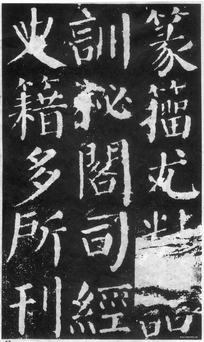 篆籀尤
訓祕閣司經
史籍多所刊